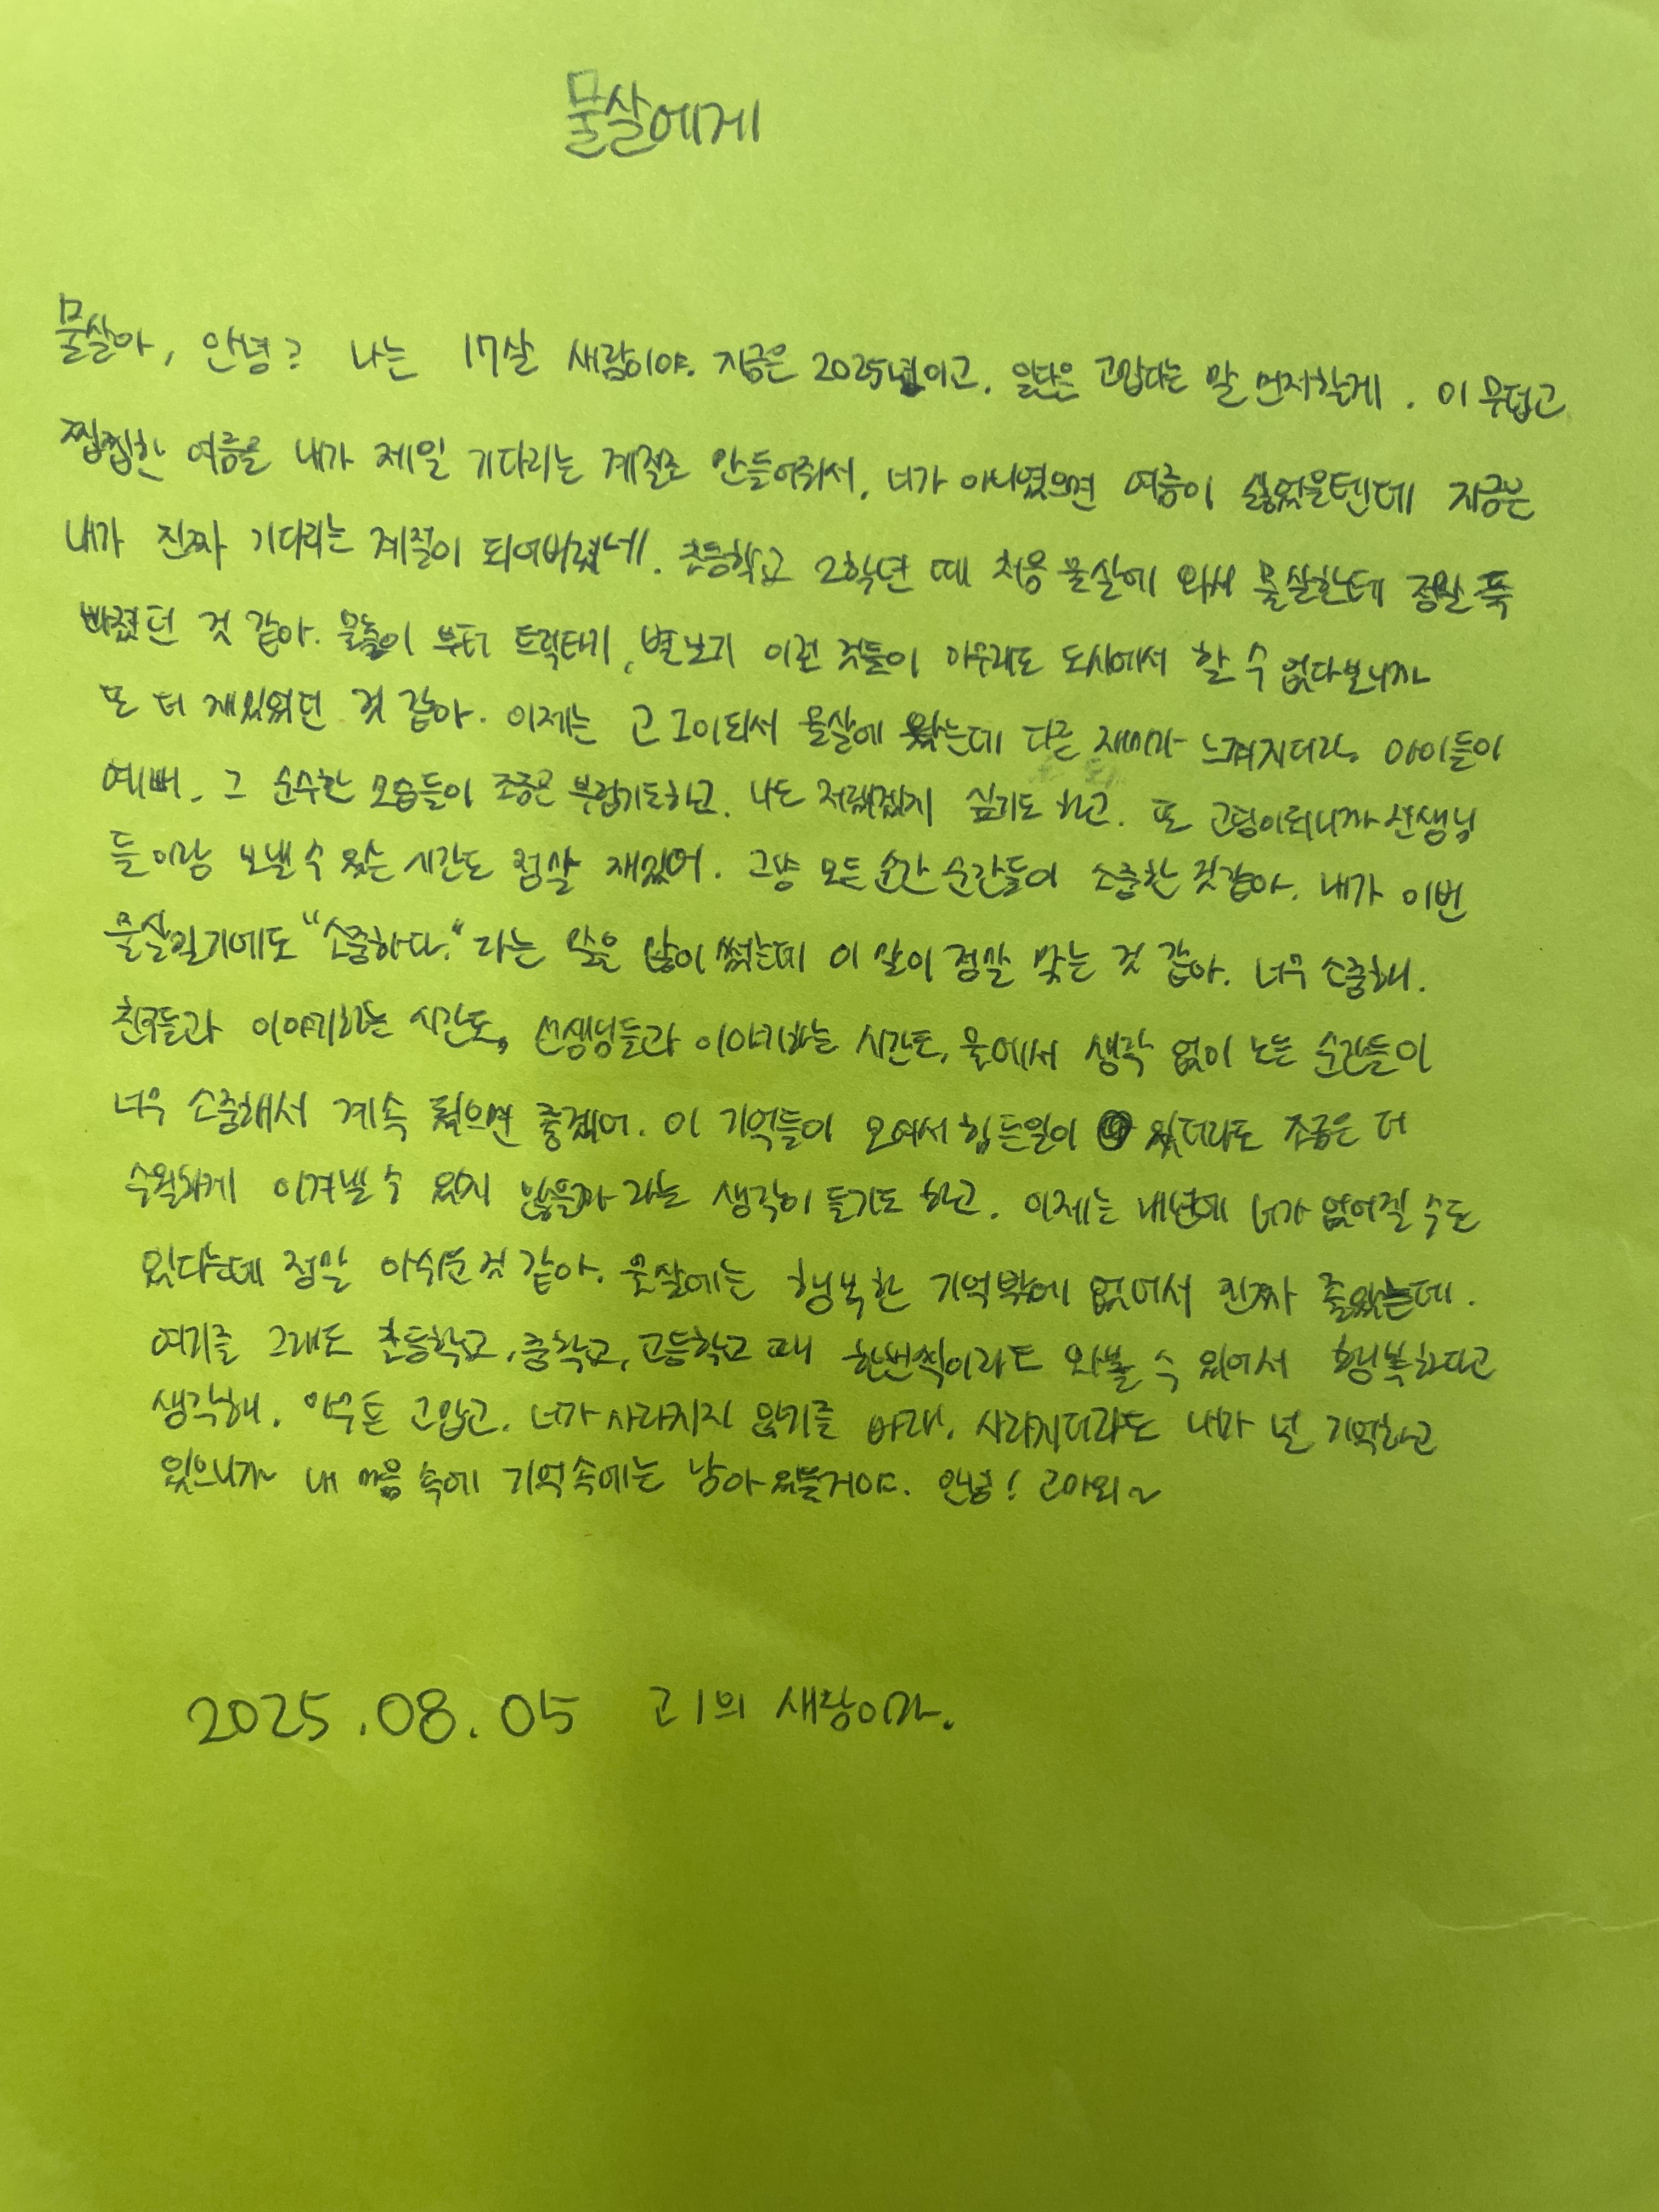 물살에게
물살아, 안녕? 나는 17살 새람이야. 지금은 2025년이고. 일단은 고맙다는 말 먼저할게. 이 무덥고
찝찝한 여름을 내가 제일 기다리는 계절로 만들어줘서. 너가 아니였으면 여름이 싫었을텐데 지금은
내가 진짜 기다리는 계절이 되어버렸네. 초등학교 2학년 때 처음 물살에 와서 물살한테 정말 푹
빠졌던 것 같아. 물놀이 부터 트랙터기, 별보기 이런 것들이 아무래도 도시에서 할 수 없다보니까
또 더 재밌었던 것 같아. 이제는 고1이되서 물살에 왔는데 다른 재미가 느껴지더라. 아이들이
예뻐. 그 순수한 모습들이 조금은 부럽기도하고. 나도 저랬겠지 싶기도 하고. 또 고딩이되니까 선생님
들이랑 보낼 수 있는 시간도 정말 재밌어. 그냥 모든 순간 순간들이 소중한 것같아. 내가 이번
물살일기에도 "소중하다." 라는 말을 많이 썼는데 이 말이 정말 맞는 것 같아. 너무 소중해.
친구들과 이야기하는 시간도, 선생님들과 이야기하는 시간도, 물에서 생각 없이 노는 순간들이
너무 소중해서 계속 됐으면 좋겠어. 이 기억들이 모여서 힘든일이 있더라도 조금은 더
수월하게 이겨낼 수 있지 않을까 라는 생각이 들기도 하고. 이제는 내년에 너가 없어질 수도
있다는데 정말 아쉬운 것 같아. 물살에는 행복한 기억밖에 없어서 진짜 좋았는데.
여기를 그래도 초등학교, 중학교, 고등학교 때 한번씩이라도 와볼 수 있어서 행복하다고
생각해. 아무튼 고맙고. 너가 사라지지 않기를 바래. 사라지더라도 내가 널 기억하고
있으니까 내 마음 속에 기억속에는 남아 있을거야. 안녕! 고마워~
2025.08.05 고1의 새람이가.